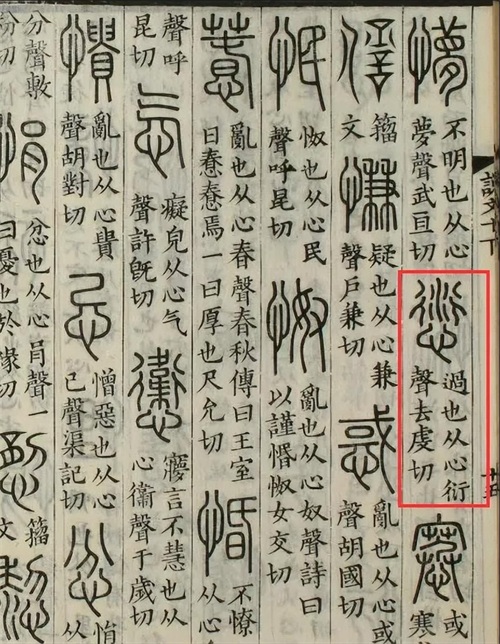 說文十下
懜 不明也从心
夢聲武亘切
愆 過也从心衍
聲去虔切
㥶 或
寒
𠎝 籀
文
慊 疑也从心兼
聲戶兼切
惑 亂也从心或
聲胡國切
怋 怓也从心民
聲呼昆切
怓 亂也从心奴聲詩曰
以謹惽怓女交切
惷 亂也从心春聲春秋傳曰王室
日惷惷焉一曰厚也尺允切
惛 不憭
从心
聲呼
昆切
忥 癡皃从心气
聲許旣切
㦣 寱言不慧也从
心衞聲于歲切
憒 亂也从心貴
聲胡對切
忌 憎惡也从心
己聲渠記切
忿 悁
从
分聲敷
粉切
悁 忿也从心肙聲一
曰憂也於緣切
籀
文